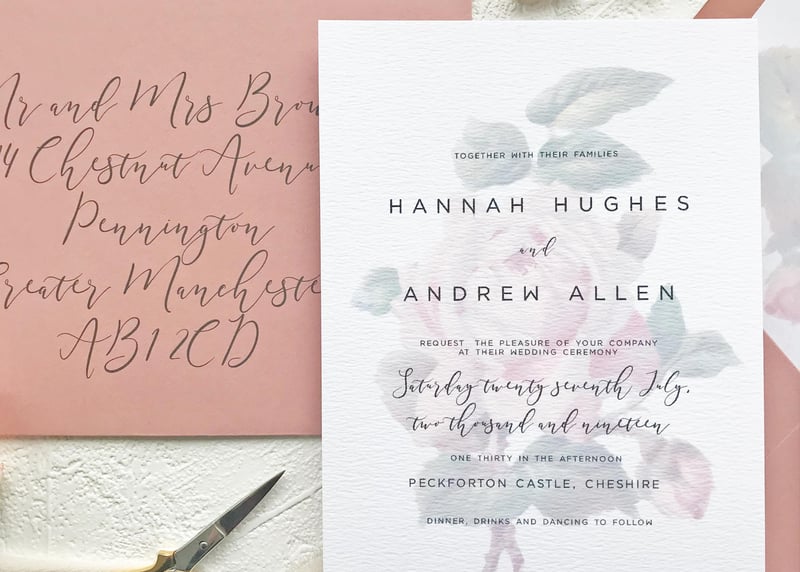 Mr and Mrs Brow
14 Chestnut Avenu
Pennington
Greater Mancheste
AB1 2CD
TOGETHER WITH THEIR FAMILIES
HANNAH HUGHES
and
ANDREW ALLEN
REQUEST THE PLEASURE OF YOUR COMPANY
AT THEIR WEDDING CEREMONY
Saturday twenty seventh July,
two thousand and nineteen
ONE THIRTY IN THE AFTERNOON
PECKFORTON CASTLE, CHESHIRE
DINNER, DRINKS AND DANCING TO FOLLOW